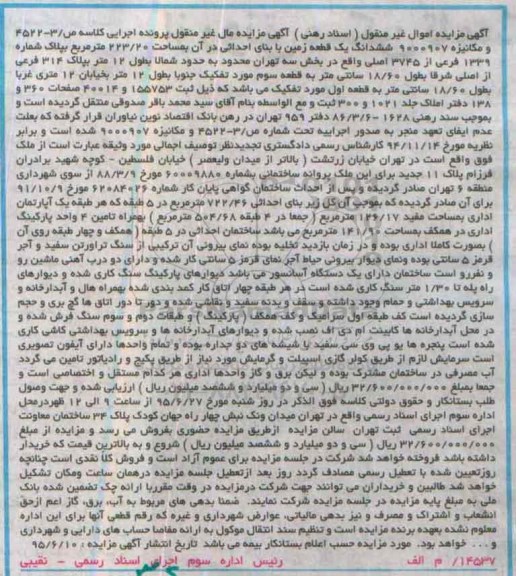 آگهی مزایده اموال غیر منقول ( اسناد رهنی ) آگهی مزایده مال غیر منقول پرونده اجرایی کلاسه ص/۳-۴۵۲۲
و مکانیزه ۹۰۰۰۹۰۷ ششدانگ یک قطعه زمین با بنای احداثی در آن بمساحت ۲۲۳/۲۰ مترمربع بپلاک شماره
۱۳۳۹ فرعی از ۳۷۴۵ اصلی واقع در بخش سه تهران محدود به حدود شمالا بطول ۱۲ متر بپلاک ۳۱۴ فرعی
از اصلی شرقا بطول ۱۸/۶۰ سانتی متر به قطعه سوم مورد تفکیک جنوبا بطول ۱۲ متر بخیابان ۱۲ متری غربا
بطول ۱۸/۶۰ سانتی متر به قطعه اول مورد تفکیک می باشد که ذیل ثبت ۱۵۵۷۵۳ و ۴۰۰۱۴ صفحات ۳۶۰ و
۱۳۸ دفتر املاک جلد ۱۰۲۱ و ۳۰۰ ثبت و مع الواسطه بنام آقای سید محمد باقر صدوقی منتقل گردیده است و
بموجب سند رهنی ۱۶۲۸ -۸۶/۳/۶ دفتر ۹۵۹ تهران در رهن بانک اقتصاد نوین نیاوران قرار گرفته که بعلت
عدم ایفای تعهد منجر به صدور اجراییه تحت شماره ص/۳-۴۵۲۲ و مکانیزه ۹۰۰۰۹۰۷ شده است و برابر
نظریه مورخ ۹۴/۱۱/۱۴ کارشناس رسمی دادگستری تجدیدنظر توصیف اجمالی مورد وثیقه عبارت است از ملک
فوق واقع است در تهران خیابان زرتشت ( بالاتر از میدان ولیعصر ) خیابان فلسطین - کوچه شهید برادران
فرزام پلاک ۱۱ جدید برای این ملک پروانه ساختمانی بشماره ۶۰۰۰۹۸۸۰ مورخ ۸۸/۳/۹ از سوی شهرداری
منطقه ۶ تهران صادر گردیده و پس از احداث ساختمان گواهی پایان کار شماره ۶۲۰۸۴۰۲۶ مورخ ۹۱/۱۰/۹
برای آن صادر گردیده که بموجب آن کل زیر بنای احداثی ۷۲۲/۴۶ مترمربع در ۵ طبقه که هر طبقه یک آپارتمان
اداری بمساحت مفید ۱۲۶/۱۷ مترمربع ( جمعا در ۴ طبقه ۵۰۴/۶۸ مترمربع ) بهمراه تامین ۴ واحد پارکینگ
اداری در همکف بمساحت ۱۴۱/۹۰ مترمربع می باشد ساختمان احداثی در ۵ طبقه ( همکف و چهار طبقه روی آن
) بصورت کاملا اداری بوده و در زمان بازدید تخلیه بوده نمای بیرونی آن ترکیبی از سنگ تراورتن سفید و آجر
قرمز ۵ سانتی بوده ونمای دیوار بیرونی حیاط آجر نمای قرمز ۵ سانتی کار شده و دارای دو درب آهنی ماشین رو
و نفررو است ساختمان دارای یک دستگاه آسانسور می باشد دیوارهای پارکینگ سنگ کاری شده و دیوارهای
راه پله تا ۱/۳۰ متر سنگ کاری شده است در هر طبقه چهار اتاق کار کمد بندی شده بهمراه هال و آبدارخانه و
سرویس بهداشتی و حمام وجود داشته و سقف و بدنه سفید و نقاشی شده و دور تا دور اتاق ها گچ بری و حجم
سازی گردیده است کف طبقه اول سرامیک و کف همکف ( پارکینگ ) و طبقات دوم و سوم سنگ فرش شده و
در محل آبدارخانه ها کابینت ام دی اف نصب شده و دیوارهای آبدارخانه ها و سرویس بهداشتی کاشی کاری
شده است پنجره ها یو پی وی سی سفید با شیشه های دو جداره بوده و تمام واحدها دارای آیفون تصویری
است سرمایش لازم از طریق کولر گازی اسپیلت و گرمایش مورد نیاز از طریق پکیج و رادیاتور تامین می گردد
آب مصرفی در ساختمان مشترک بوده و لیکن برق و گاز واحدها اداری هر کدام مستقل و اختصاصی است و
جمعا بمبلغ ۳۲/۶۰۰/۰۰۰/۰۰۰ ریال ( سی و دو میلیارد و ششصد میلیون ریال ) ارزیابی شده و جهت وصول
طلب بستانکار و حقوق دولتی کلاسه فوق الذکر در روز شنبه مورخ ۹۵/۶/۲۷ از ساعت ۹ الی ۱۲ ظهردرمحل
اداره سوم اجرای اسناد رسمی واقع در تهران میدان ونک نبش چهار راه جهان کودک پلاک ۳۴ ساختمان معاونت
اجرای اسناد رسمی ثبت تهران سالن مزایده ازطریق مزایده حضوری بفروش می رسد و مزایده از مبلغ
۳۲/۶۰۰/۰۰۰/۰۰۰ ریال ( سی و دو میلیارد و ششصد میلیون ریال ) شروع و به بالاترین قیمت که خریدار
داشته باشد فروخته خواهد شد شرکت در جلسه مزایده برای عموم آزاد است و فروش کلا نقدی است چنانچه
روزتعیین شده با تعطیل رسمی مصادف گردد روز بعد ازتعطیل جلسه مزایده درهمان ساعت ومکان تشکیل
خواهد شد طالبین و خریداران می توانند جهت شرکت درمزایده در وقت مقرربا ارائه چک تضمین شده بانک
ملی به مبلغ پایه مزایده در جلسه مزایده شرکت نمایند. ضمنا بدهی های مربوط به آب، برق، گاز اعم ازحق
انشعاب و اشتراک و مصرف و نیز بدهی مالیاتی، عوارض شهرداری و غیره که رقم قطعی آنها برای این اداره
معلوم نشده بعهده برنده مزایده است و تنظیم سند انتقال موکول به ارائه مفاصا حساب های دارایی و شهرداری
و ... خواهد بود. مورد مزایده حسب اعلام بستانکار بیمه می باشد تاریخ انتشار آگهی مزایده : ۹۵/۶/۱۰
۱۴۵۳۷/ م الف رئیس اداره سوم اجرای اسناد رسمی - نقیبی